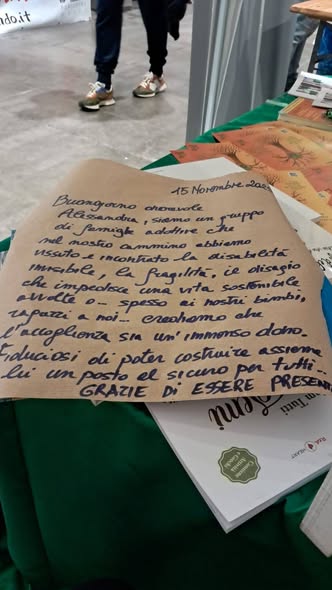 15 Novembre 202
Buongiorno onorevole
Alessandra, siamo un gruppo
di famiglie adottive che
nel nostro cammino abbiamo
vissuto e incontrato la disabilità
invisibile, la fragilità, il disagio
che impedisce una vita sostenibile
avvolte o... spesso ai nostri bimbi,
ragazzi a noi... crediamo che
l'accoglienza sia un'immenso dono.
Fiduciosi di poter costruire assieme
lei un posto al sicuro per tutti...
GRAZIE DI ESSERE PRESEN
Tutti